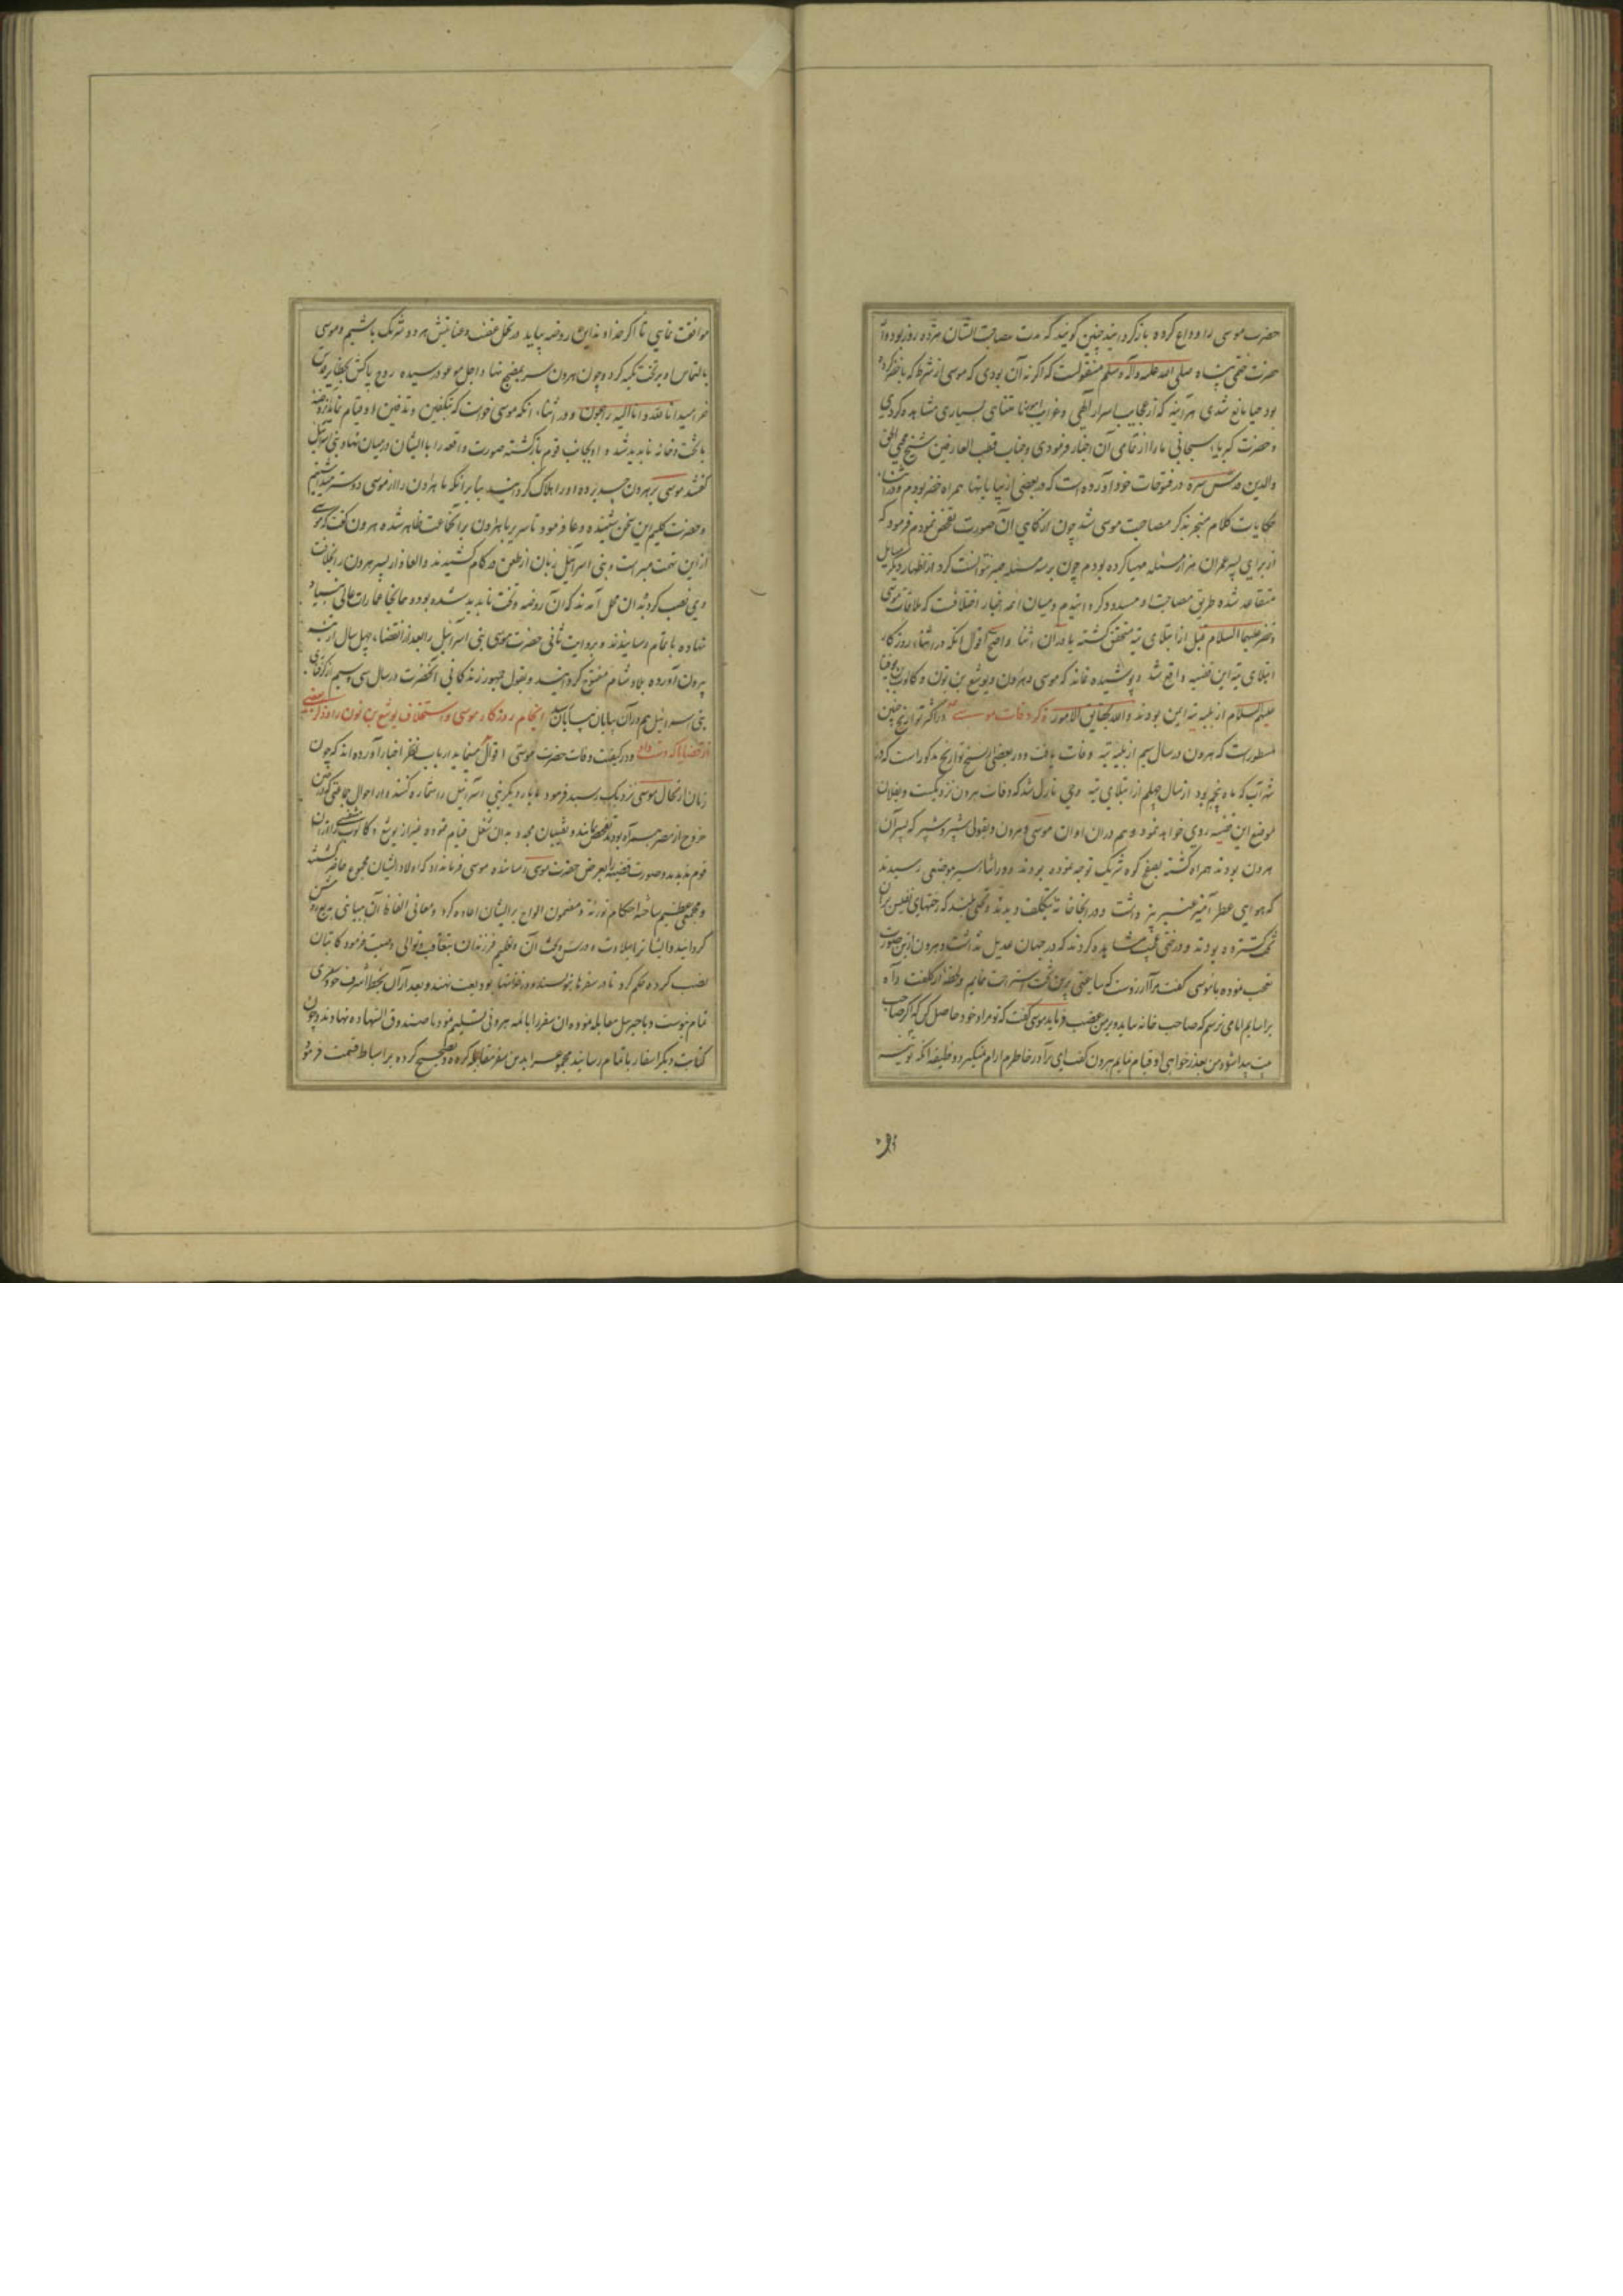 حضرت موسی را وداع کرده باز گردانید چنین گویند که مدت مصاحبت ایشان هژده روز بود و از
حضرت ختمی پناه صلی الله علیه و آله وسلم منقولست که اگر نه آن بودی که موسی از شرط که با خضر کرده
بود حیا مانع شدی هرآینه که از عجایب اسرار الهی و غرایب امور نامتناهی بسیاری مشاهده کردی
و حضرت کبریاء سبحانی ما را از تمامی آن اخبار فرمودی و جناب قطب العارفین شیخ محیی الحق
والدین قدس سره در فتوحات خود آورده است که در بعضی از بیابانها همراه خضر بودم و در اثناء
حکایات کلام منجر بذکر مصاحبت موسی شد چون از کمابی آن صورت تفحص نمودم فرمود که
از برای پسر عمران هزار مسئله مهیا کرده بودم چون بر سه مسئله صبر نتوانست کرد از اظهار دیگر مسایل
متقاعد شده طریق مصاحبت مسدود گردانیدم و میان ائمه اخبار اختلافست که ملاقات موسی
و خضر علیهما السلام قبل از ابتلای تیه متحقق گشته یا در آن اثنا و اصح اقوال آنکه در اثناء روزگار
ابتلای تیه این قضیه واقع شد و پوشیده نماند که موسی و هارون و یوشع بن نون و کالوب بن یوفنا
علیهم السلام از بلیه تیه ایمن بودند والله بحقایق الامور ذکر وفات موسی در اکثر تواریخ چنین
مسطورست که هرون در سال سیم از بلیه تیه وفات یافت و در بعضی از نسخ تواریخ مذکور است که در
شهر آب که ماه پنجم بود از سال چهلم از ابتلای تیه وحی نازل شد که وفات هرون نزدیکست و بفلان
موضع این قضیه روی خواهد نمود و هم در آن اوان موسی و هرون و بقولی شبر و شبیر که پسران
هرون بودند همراه گشته توجه نموده بودند و در اثناء سیر بموضعی رسیدند
که هوایی عطر آمیز عنبر بیز داشت و در آنجا خانه بتکلف دیدند و تختی که رختهای نفیس بر آن
تخت گسترده بودند و درختی مشاهده کردند که در جهان عدیل نداشت و هرون ازین صورت
تعجب نموده با موسی گفت مرا آرزوست که ساعتی برین تخت استراحت نمایم و لحظه از کلفت راه
براسایم اما می ترسم که صاحب خانه بیاید و بر من غضب فرماید موسی گفت که تو مراد خود حاصل کن که اگر صاحب
بیت پیدا شود من بعذرخواهی او قیام نمایم هرون گفت ای برادر خاطرم آرام نمیگیرد وظیفه آنکه تو نیز
موافقت نمایی تا اگر خداوند این روضه بیاید در تحمل عنف و عتابش هر دو شریک باشیم و موسی
بالتماس او بر تخت تکیه کرد و چون هرون سر بمضجع نهاد اجل موعود رسیده روح پاکش بحظایر قدس
خرامید انا لله وانا الیه راجعون و در اثناء آنکه موسی خواست که بتکفین و تدفین او قیام نماید روضه
با تخت و خانه ناپدید شد و او بجانب قوم بازگشته صورت واقعه را با ایشان در میان نهاد بنی اسرائیل
گفتند موسی بر هرون حسد برده او را هلاک گردانید بنا بر آنکه ما هارون را از موسی دوستر میداشتیم
و حضرت کلیم این سخن شنیده دعا فرمود تا سریر با هرون بر آن جماعت ظاهر شده هرون گفت که موسی
ازین تهمت مبراست و بنی اسرائیل زبان از طعن در کام کشیدند و العازار پسر هرون را بخلافت
وی نصب کردند در آن محل آمدند که آن روضه و تخت ناپدید شده بود و همانجا عمارات عالی بنیاد
نهاده باتمام رسانیدند و بروایت ثانی حضرت موسی بنی اسرائیل را بعد از انقضاء چهل سال از تیه
بیرون آورده بلاد شام مفتوح گردانید و بقول جمهور زندگانی آنحضرت در سال سی و سیم از گرفتاری
بنی اسرائیل هم در آن بیابان بپایان رسید انجام روزگار موسی و استخلاف یوشع بن نون را و ذکر بعضی
از قضایا که دست داد در کیفیت وفات حضرت موسی اقوال ارباب نظر اخبار آورده اند که چون
زمان ارتحال موسی نزدیک رسید فرمود تا بار دیگر بنی اسرائیل را شماره کنند و از احوال جماعتی که در حین
خروج از مصر همراه بودند تفحص نمایند و نقیبان مجد بدان شغل قیام نموده غیر از یوشع و کالوب شخصی را از آن
قوم ندیدند و صورت قضیه را بعرض حضرت موسی رسانیده موسی فرمان داد که اولاد ایشان مجموع حاضر گشتند
و مجمعی عظیم ساخته احکام توریة و مضمون الواح بر ایشان اعاده کرد و معانی الفاظ آن مبانی روشن
گردانید و ایشانرا بتلاوت و درس و بحث آن و تعلیم فرزندان بتعاقب و توالی وصیت فرمود کاتبان
نصب کرده حکم کرد تا در سفرها بنویسند و در خزانها بودیعت نهند و بعد از آن بخط اشرف خود سفری
تمام نوشت و با جبرئیل مقابله نموده آن سفر را بائمه هرونی تسلیم نمود تا صندوق الشهاده نهادند و چون
کتابت دیگر اسفار باتمام رسانیدند مجموع را بدین سفر مقابله کرده و تصحیح کرده بر اسباط قسمت فرمود